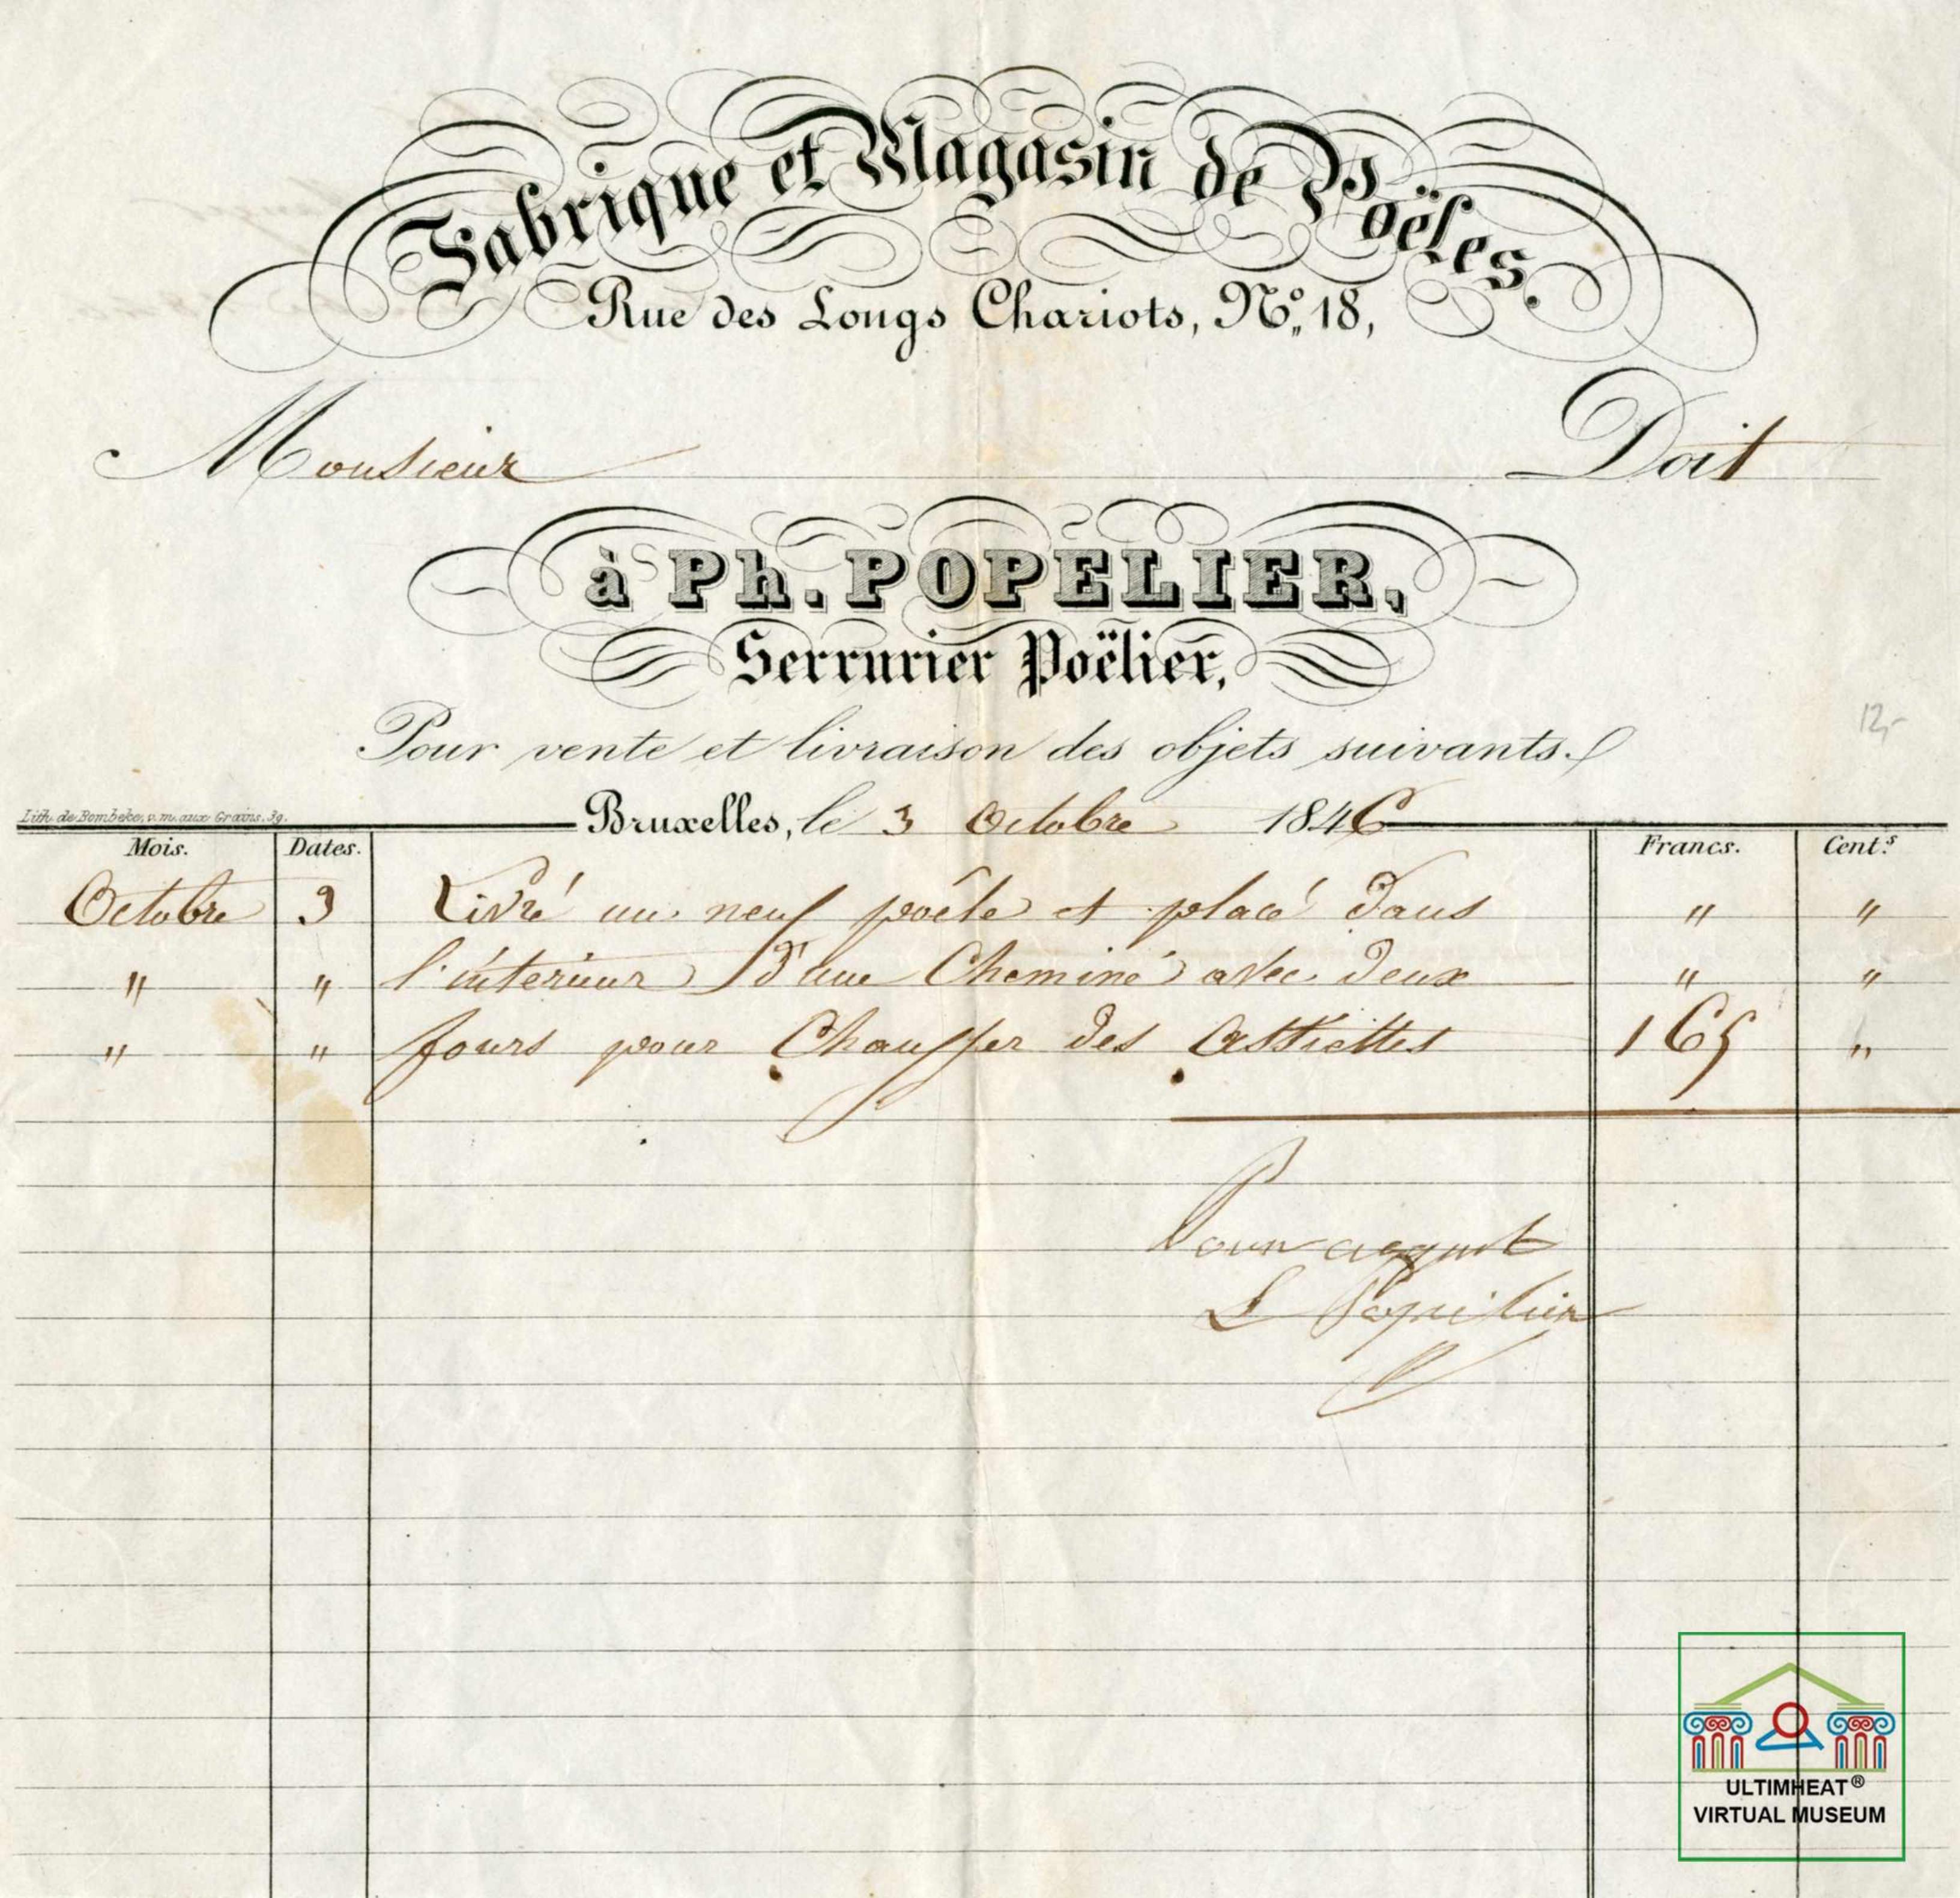 Fabrique et Magasin de Poëles.
Rue des Longs Chariots, N° 18,
Monsieur Doit
à Ph. POPELIER,
Serrurier Poëlier,
Pour vente et livraison des objets suivants.
12,-
Lith. de Bombeke, v. m. aux Grains. 39.
Bruxelles, le 3 Octobre 1846
Mois. Dates. Francs. Cent.s
Octobre 3 Livré un neuf poêle et placé dans " "
" " l'interieur d'une Cheminé avec deux " "
" " fours pour Chauffer des assiettes 165 "
Pour acquit
Popelier
ULTIMHEAT®
VIRTUAL MUSEUM